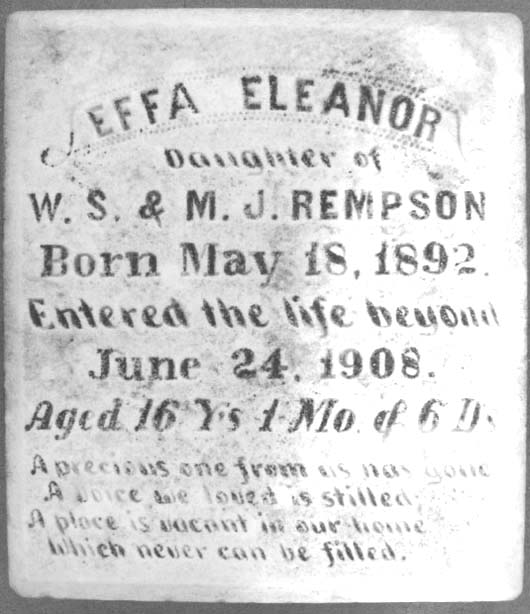 EFFA ELEANOR
Daughter of
W. S. & M. J. REMPSON
Born May 18, 1892.
Entered the life beyond
June 24, 1908.
Aged 16 Ys 1 Mo. & 6 Ds
A precious one from us has gone
A voice we loved is stilled;
A place is vacant in our home
Which never can be filled.